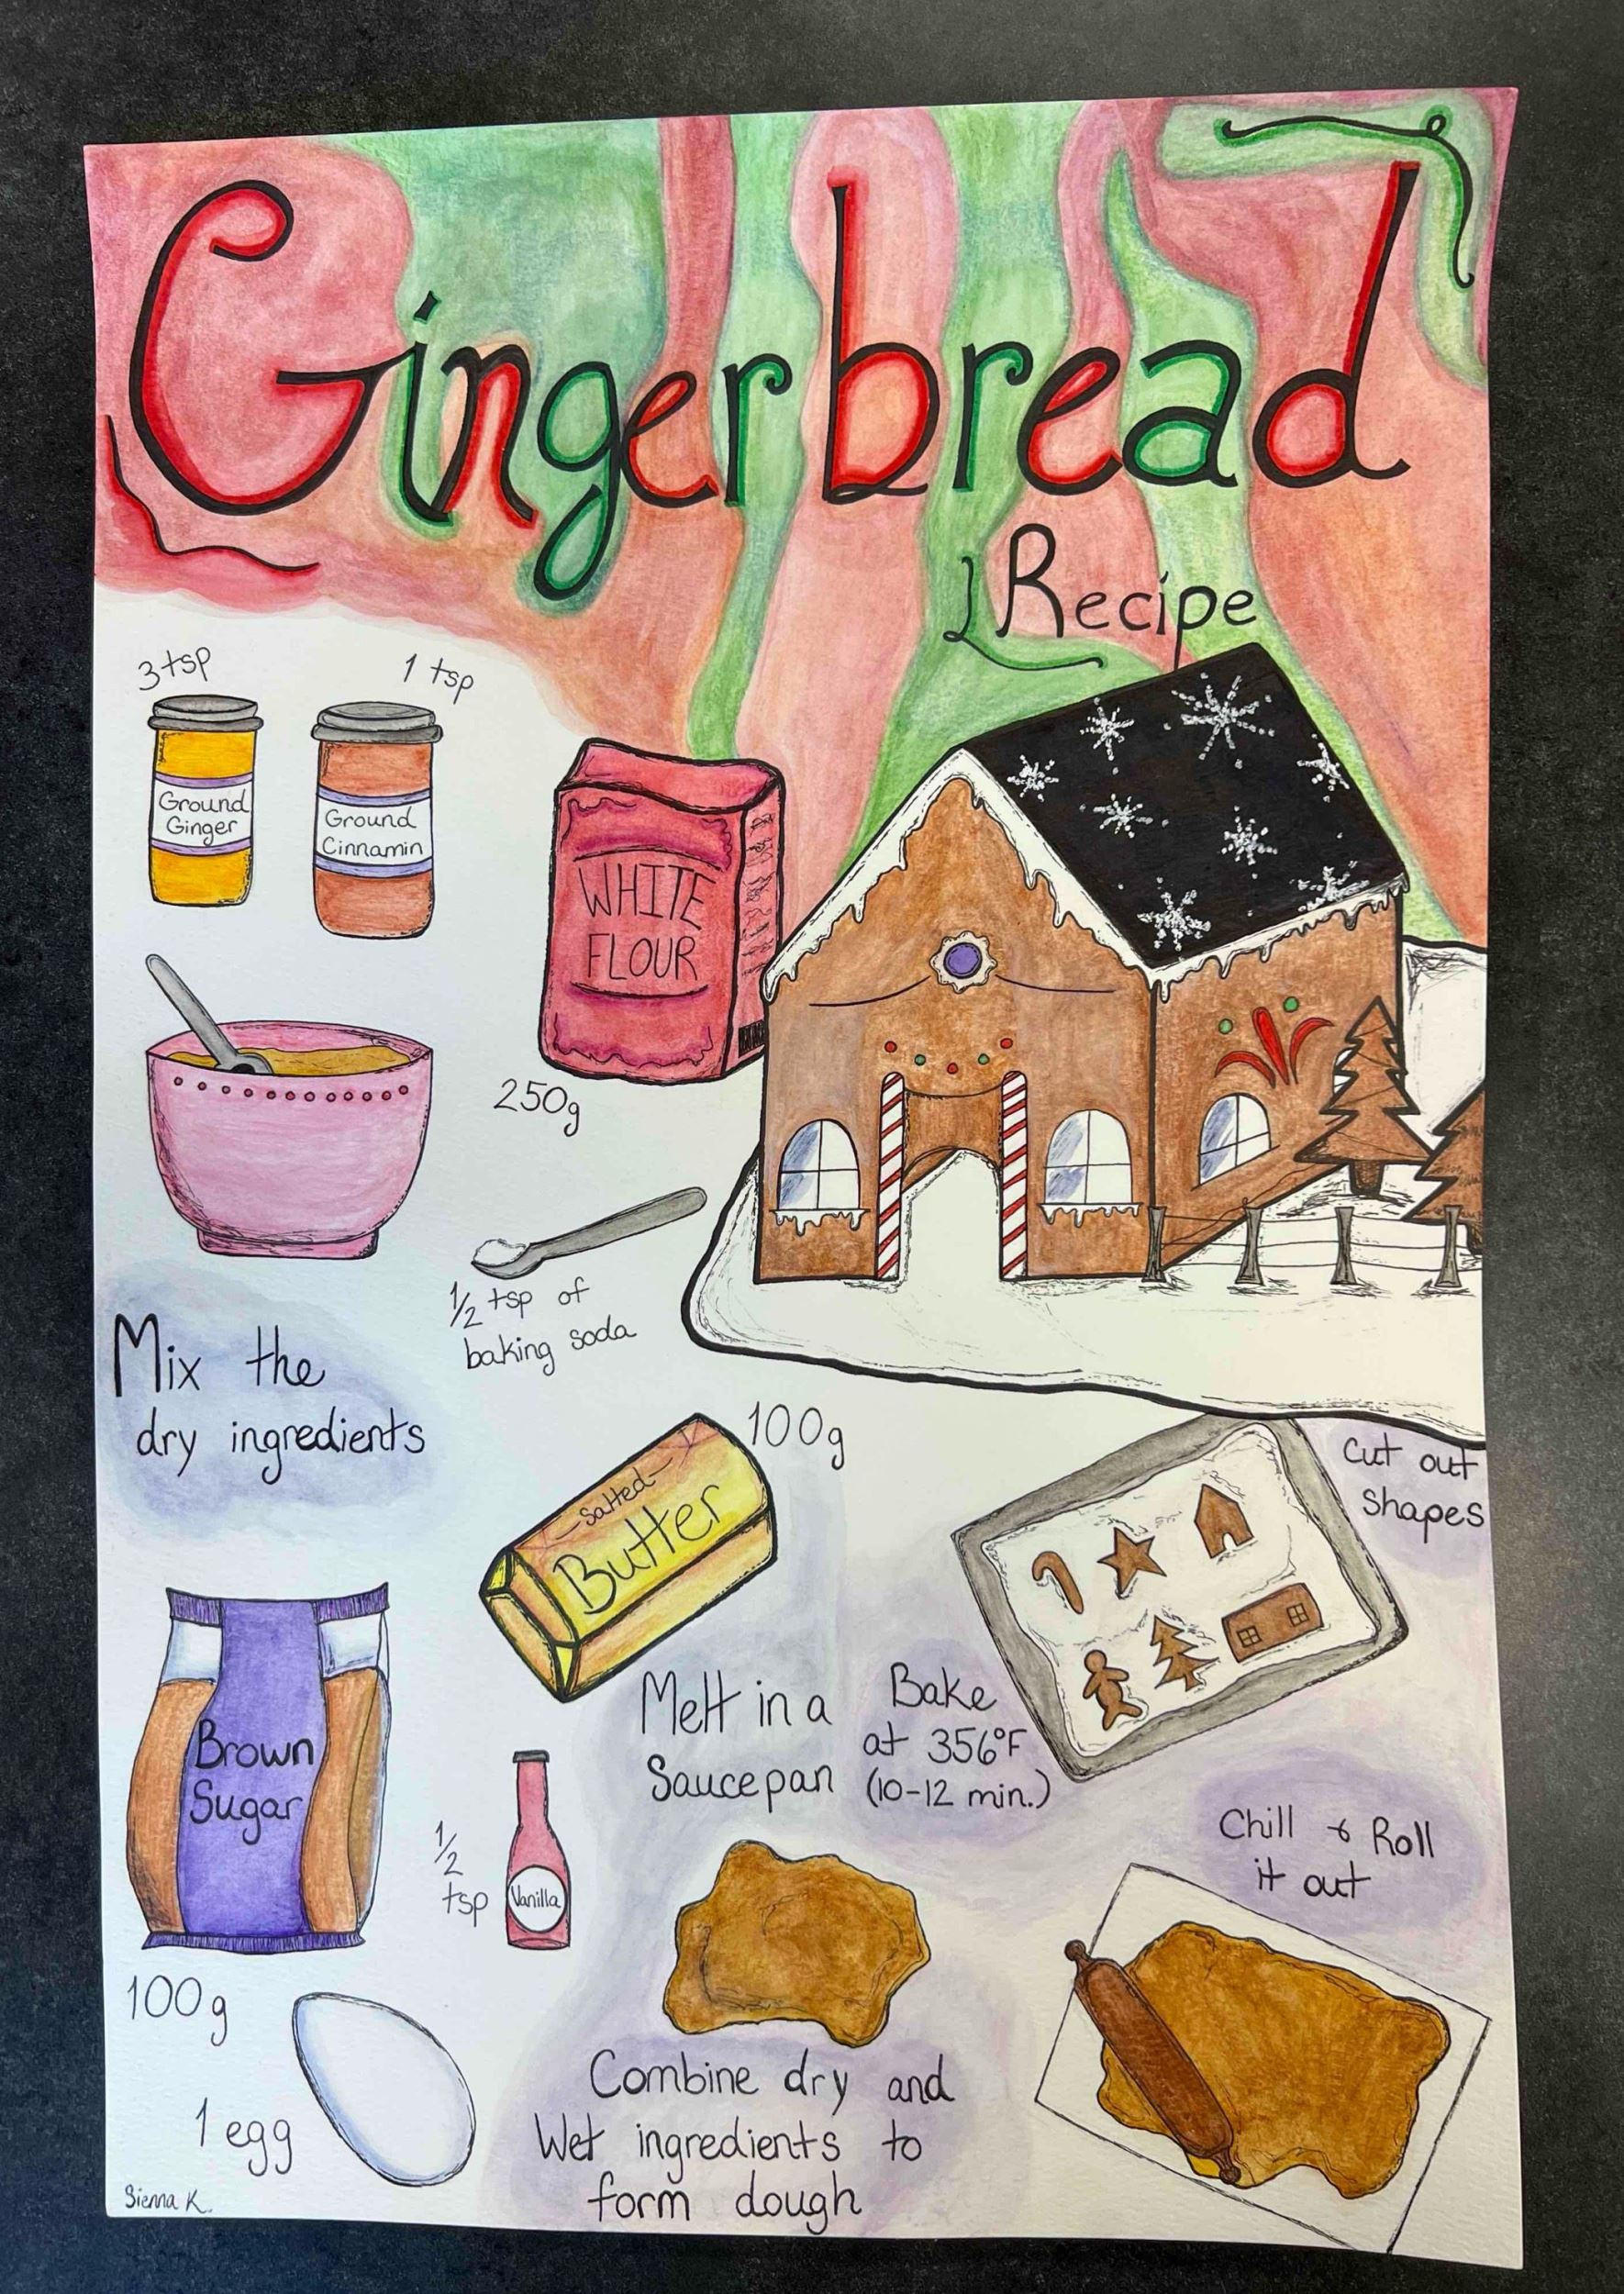 Gingerbread
Recipe
3 tsp
1 tsp
Ground
Ginger
Ground
Cinnamin
WHITE
FLOUR
250g
1/2 tsp of
baking soda
Mix the
dry ingredients
100g
-Salted-
Butter
Melt in a
Saucepan
Brown
Sugar
100g
1/2
tsp
Vanilla
1 egg
Combine dry and
Wet ingredients to
form dough
Chill & Roll
it out
Cut out
shapes
Bake
at 356°F
(10-12 min.)
Sienna K.